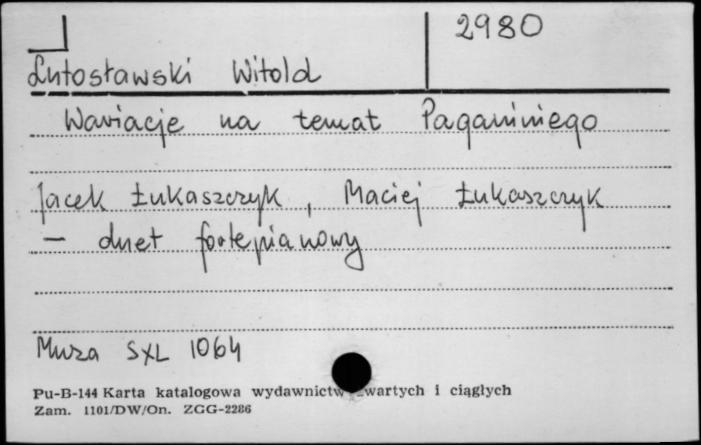 2980
Lutosławski Witold
Wariacje na temat Paganiniego
Jacek Łukaszczyk, Maciej Łukaszczyk
– duet fortepianowy
Muza SXL 1064
Pu-B-144 Karta katalogowa wydawnictw wartych i ciągłych
Zam. 1101/DW/On. ZGG-2286